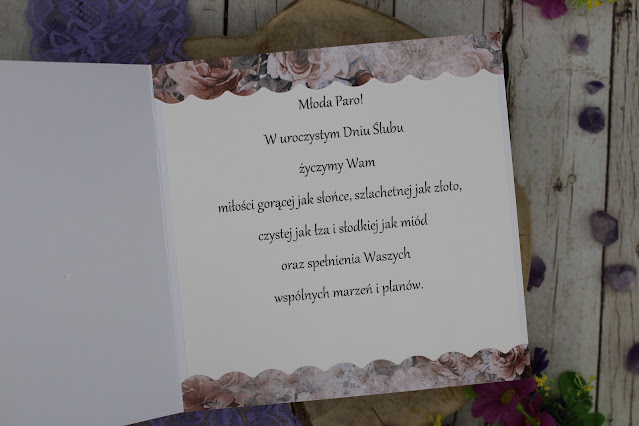 Młoda Paro!
W uroczystym Dniu Ślubu
życzymy Wam
miłości gorącej jak słońce, szlachetnej jak złoto,
czystej jak łza i słodkiej jak miód
oraz spełnienia Waszych
wspólnych marzeń i planów.